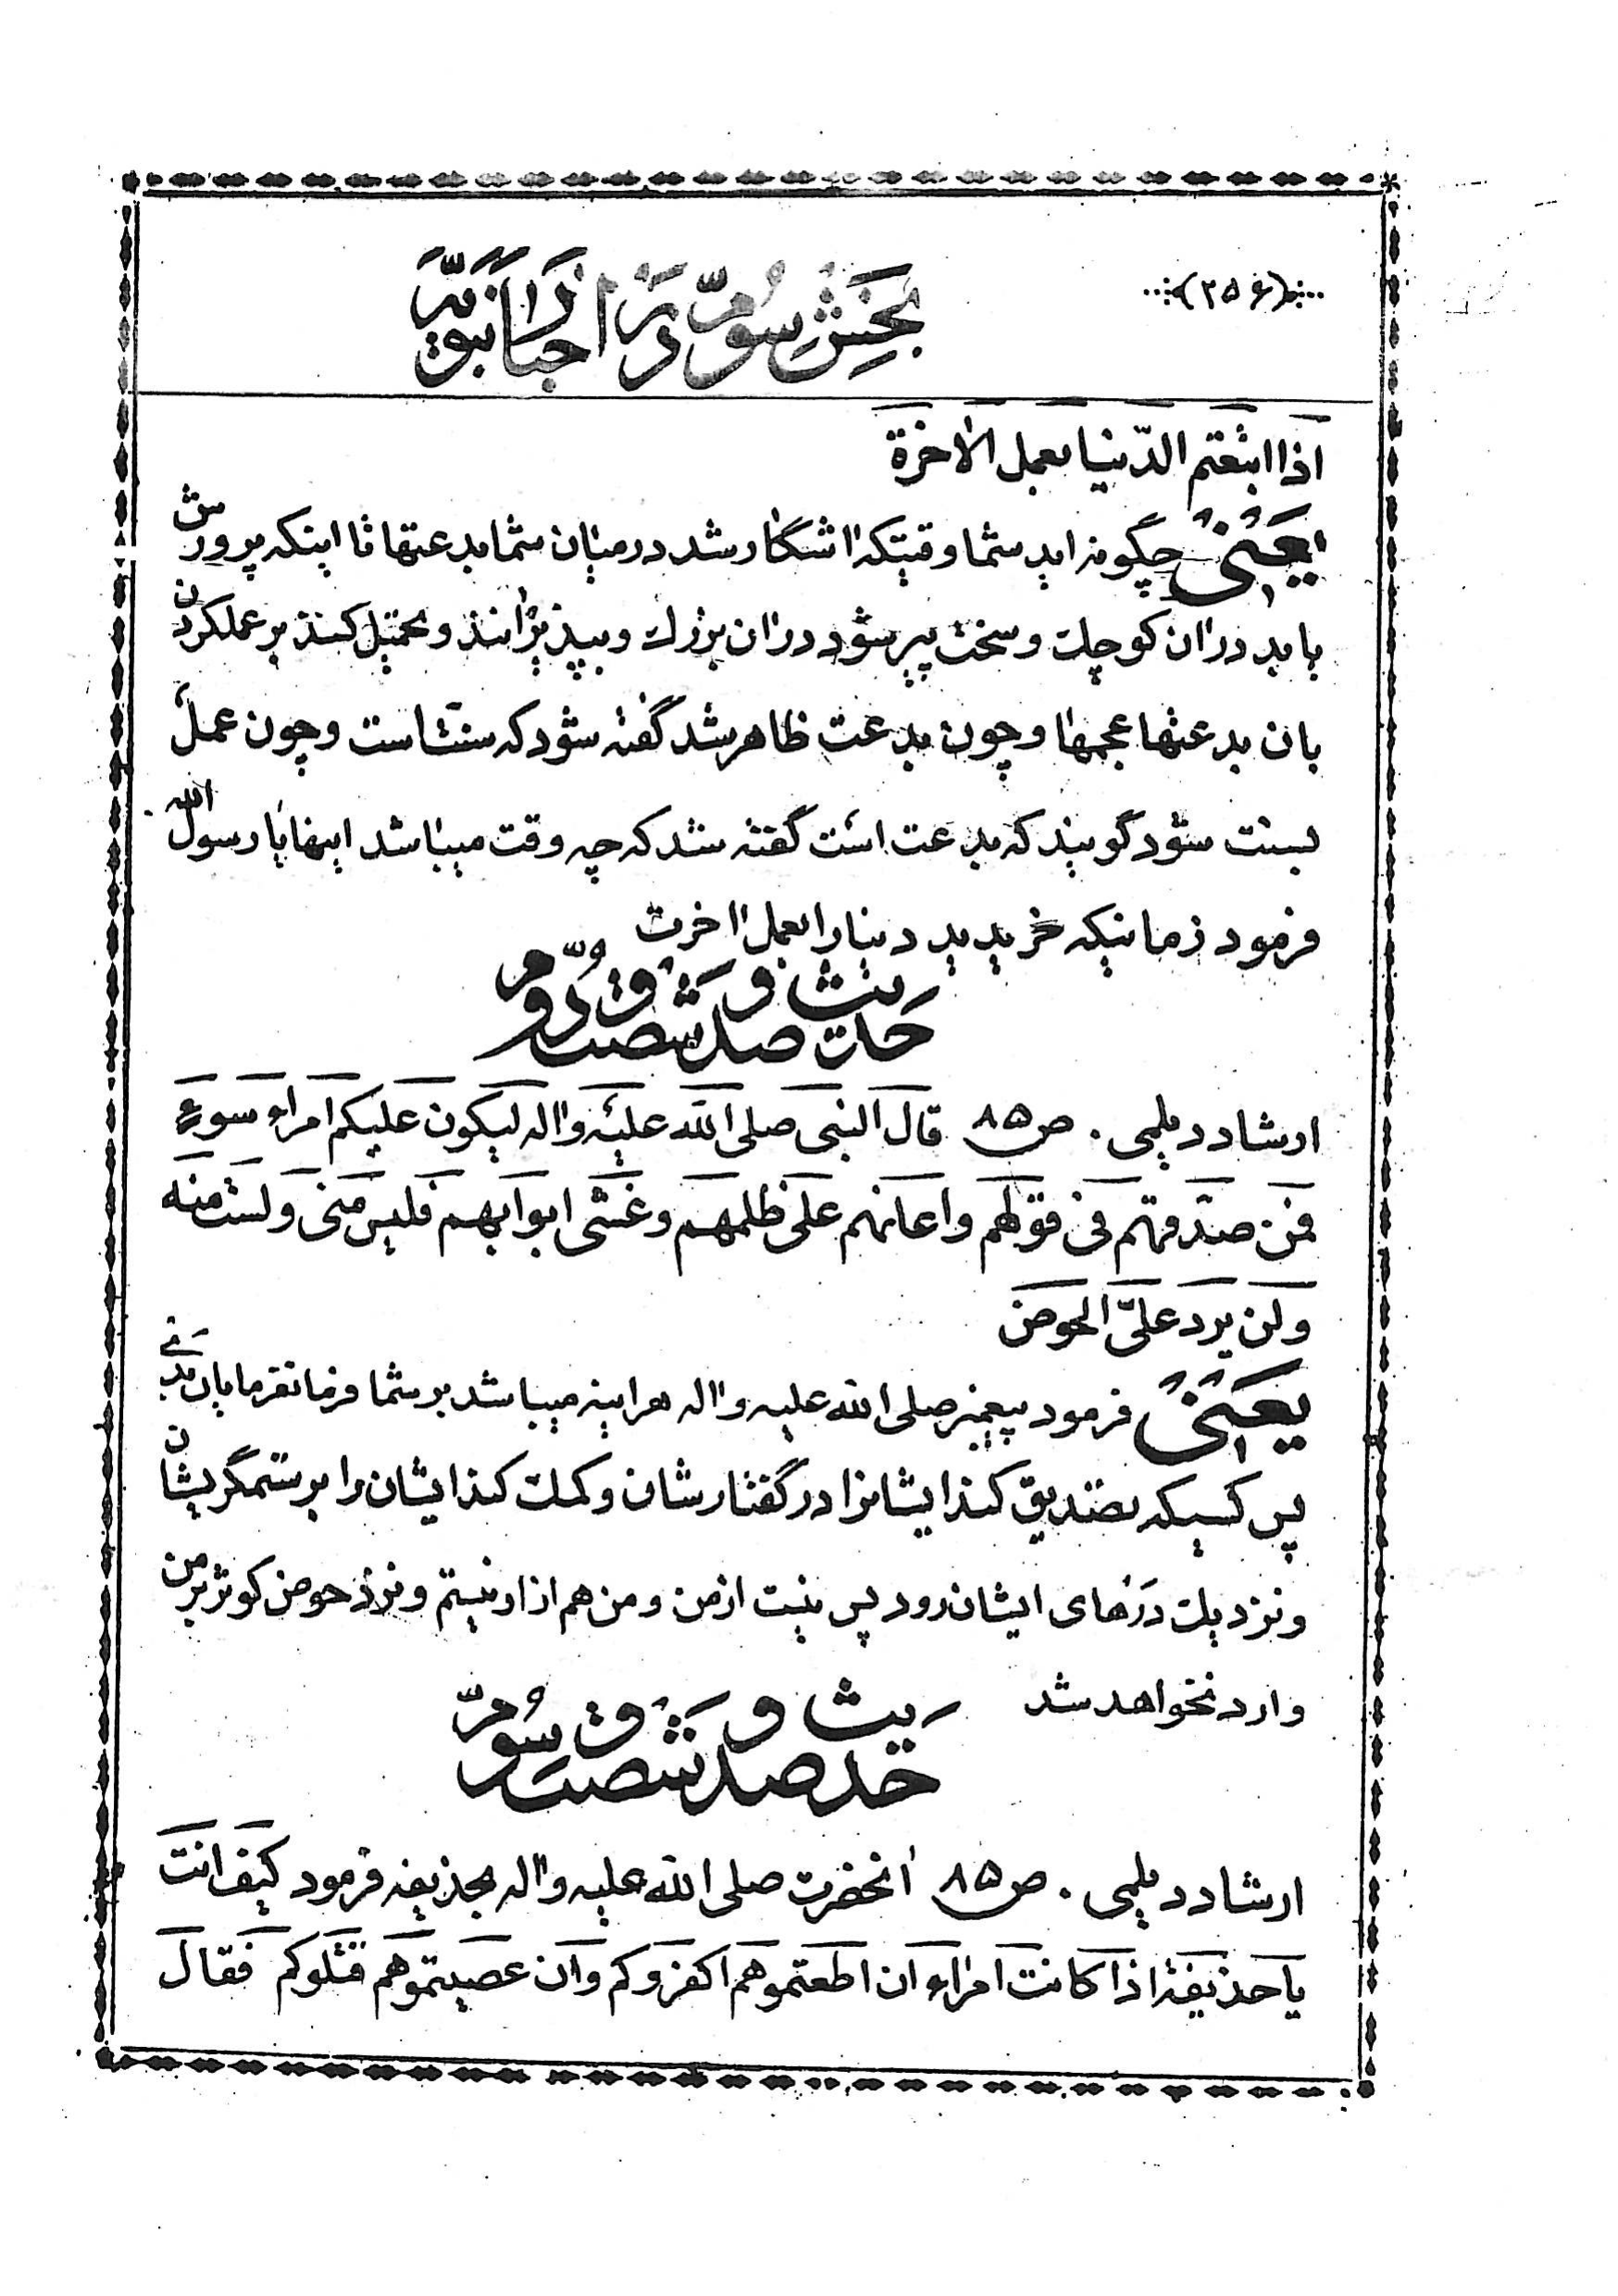 (۲۵۶)
بخش سوم در اخبار نبویه
اذا ابتعتم الدّنیا بعمل الاخرة
یعنی چگونه اید شما وقتیکه اشکار شد در میان شما بدعتها تا اینکه پرورش
یابد در ان کوچک و سخت پیر شود در ان بزرك و بپذیزانند و تحمیل کنند بر عملکردن
بان بدعتها عجمها و چون بدعت ظاهر شد گفته شود که سنت است و چون عمل
بسنت شود گویند که بدعت است گفته شد که چه وقت میباشد اینها یا رسول الله
فرمود زمانیکه خریدید دنیا را بعمل اخرت
حدیث صد و شصت و دوم
ارشاد دیلمی . ص ۸۵ قال النبی صلی الله علیه و اله لیکون علیکم امراء سوء
فمن صدّقهم فی قولهم و اعانهم علی ظلمهم و غشی ابوابهم فلیس منی و لست منه
و لن یرد علیّ الحوض
یعنی فرمود پیغمبر صلی الله علیه و اله هراینه میباشد بر شما فرمانفرمایان بدی
پس کسیکه تصدیق کند ایشانرا در گفتارشان و کمك کند ایشان را بر ستمگریشان
و نزدیك درهای ایشان رود پس نیست از من و من هم از او نیستم و نزد حوض کوثر بر من
وارد نخواهد شد
حدیث صد و شصت و سوم
ارشاد دیلمی . ص ۸۵ انحضرت صلی الله علیه و اله بحذیفه فرمود کیف انت
یا حذیفة اذا کانت امراء ان اطعتموهم اکفروکم و ان عصیتموهم قتلوکم فقال